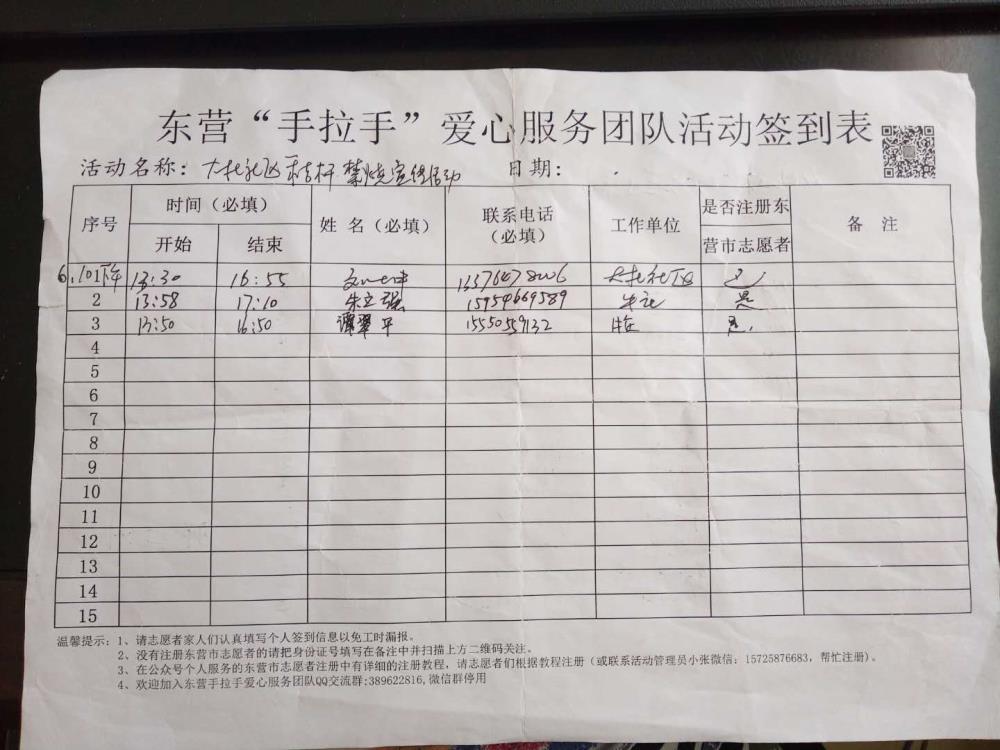 东营“手拉手”爱心服务团队活动签到表
活动名称：大杜社区秸秆禁烧宣传活动 日期：
序号 时间（必填） 姓 名（必填） 联系电话（必填） 工作单位 是否注册东营市志愿者 备 注
开始 结束
13:30 16:55
2 13:58 17:10 朱立强 15954669589 是
3 13:50 16:50 谭翠平 15550559132
4
5
6
7
8
9
10
11
12
13
14
15
温馨提示：1、请志愿者家人们认真填写个人签到信息以免工时漏报。
2、没有注册东营市志愿者的请把身份证号填写在备注中并扫描上方二维码关注。
3、在公众号个人服务的东营市志愿者注册中有详细的注册教程，请志愿者们根据教程注册（或联系活动管理员小张微信：15725876683，帮忙注册）。
4、欢迎加入东营手拉手爱心服务团队QQ交流群:389622816,微信群停用